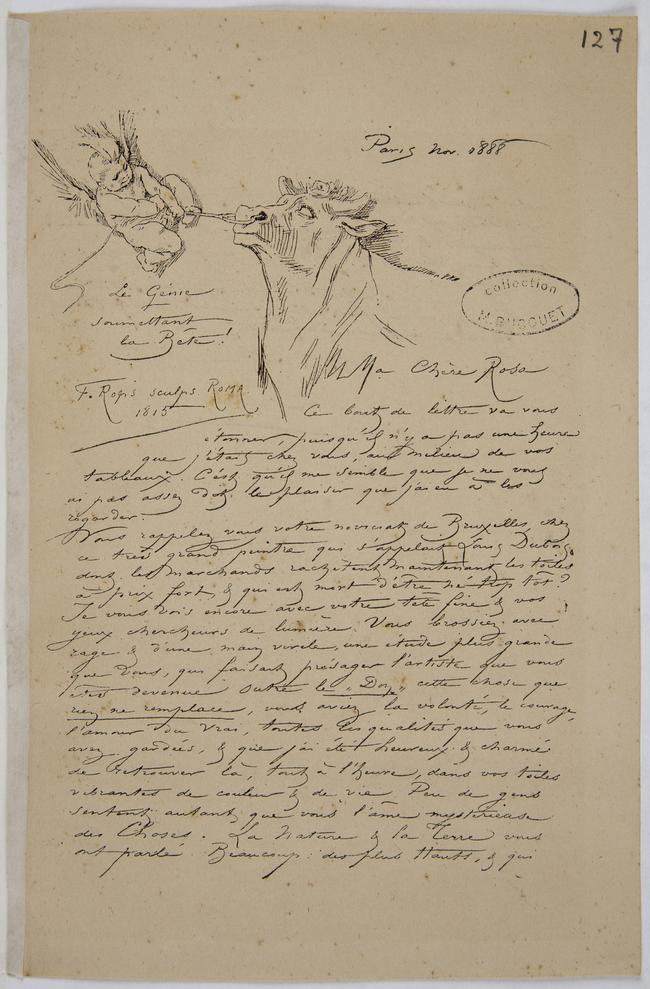 127
Paris Nov. 1888
Le Génie
soumettant
la Bête!
collection
M. BUCQUET
F. Rops sculps. ROMA
1815
Ma Chère Rosa
Ce bout de lettre va vous
étonner, puisqu'il n'y a pas une heure
que j'étais chez vous, au milieu de vos
tableaux. C'est qu'il me semble que je ne vous
ai pas assez dit, le plaisir que j'ai eu à les
regarder.
Vous rappelez vous votre noviciat de Bruxelles, chez
ce très grand peintre qui s'appelait Louis Dubois,
dont les marchands rachètent maintenant les toiles
à prix fort, & qui est mort d'être né trop tôt?
Je vous vois encore avec votre tête fine & vos
yeux chercheurs de lumière. Vous brossiez avec
rage & d'une main virile, une étude plus grande
que Vous, qui faisait présager l'artiste que vous
êtes devenue. Outre le "Don" cette chose que
rien ne remplace, vous aviez la volonté, le courage,
l'amour du Vrai, toutes les qualités que vous
avez gardées, & que j'ai été heureux & charmé
de retrouver là, tout à l'heure, dans vos toiles
vibrantes de couleur & de vie. Peu de gens
sentent autant que vous l'âme mystérieuse
des Choses. La Nature & la Terre vous
ont parlé. Beaucoup: des plus Hauts, & qui